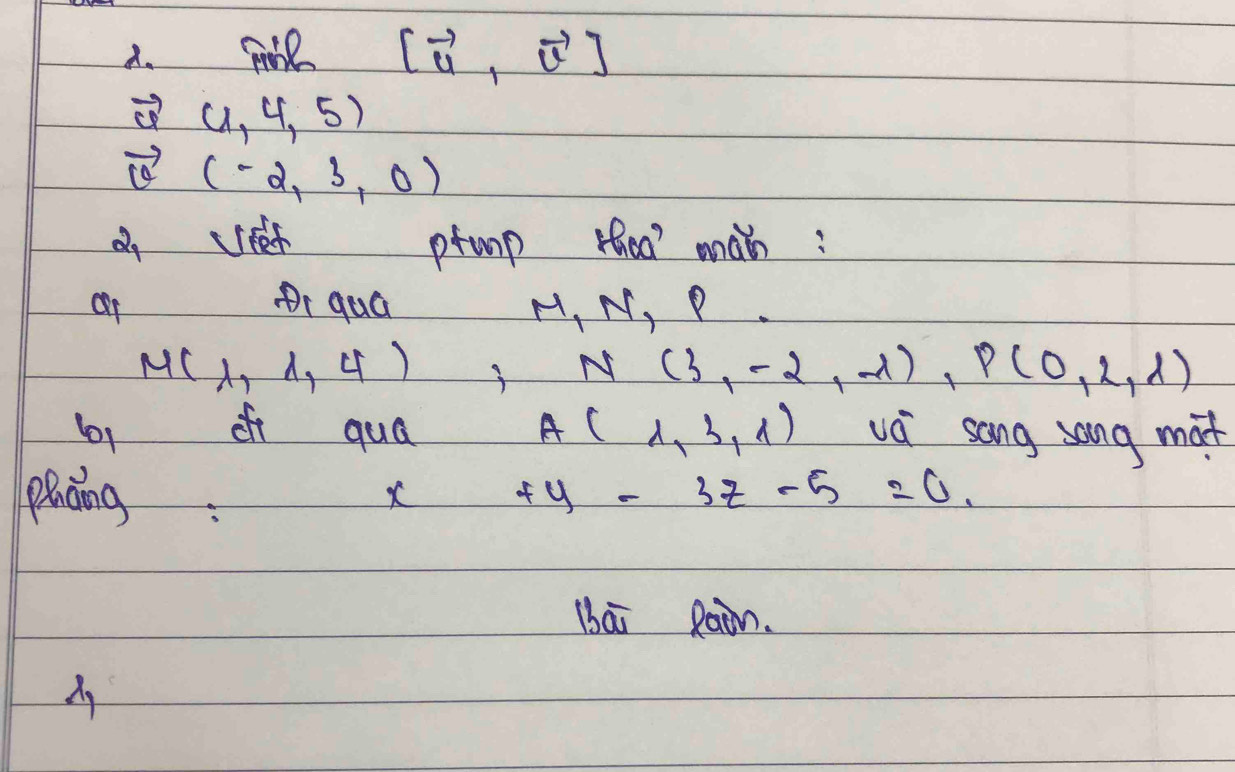 1. Tính [u⃗, v⃗]
u⃗ (1, 4, 5)
v⃗ (-2, 3, 0)
2, Viết ptmp thoả mãn :
a, Đi qua M, N, P.
M(1, 1, 4) ; N (3, -2, -1), P(0, 2, 1)
b, đi qua A (1, 3, 1) và song song mặt
phẳng : x + y - 3z - 5 = 0.
Bài làm.
1,